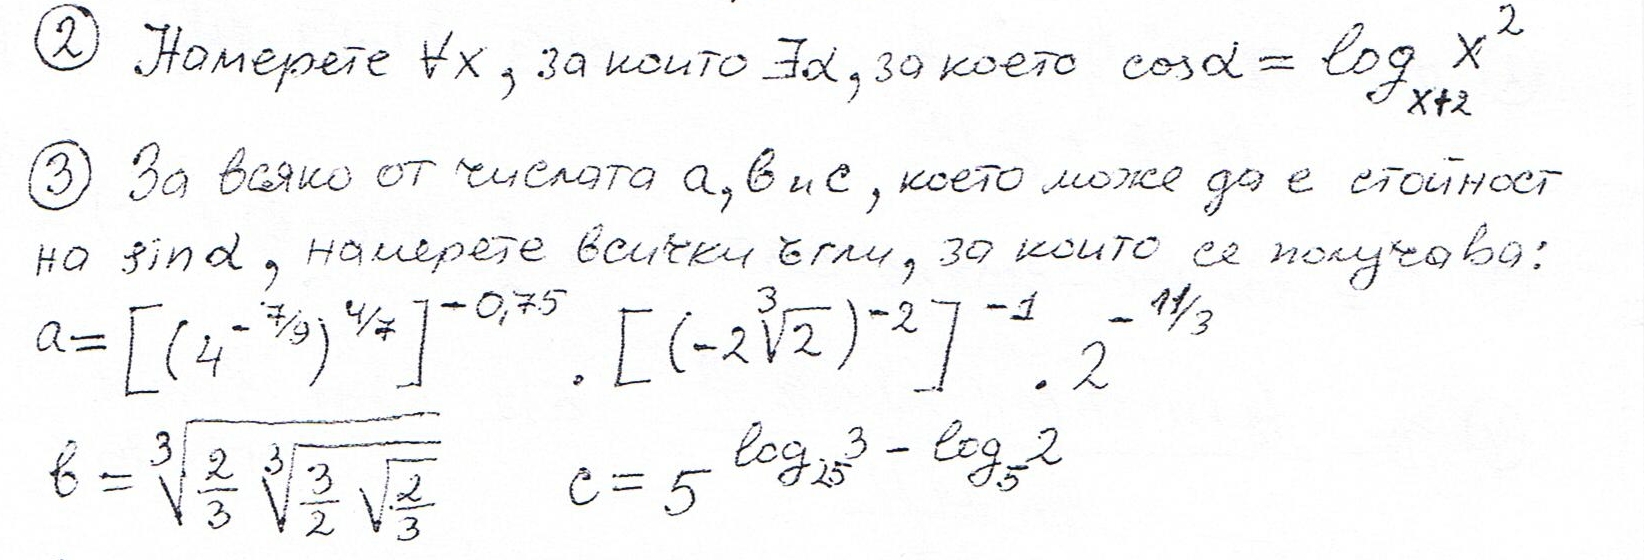 ② Намерете ∀x, за които ∃α, за което cosα = log_{x+2} x²
③ За всяко от числата a, в и c, което може да е стойност
на sinα, намерете всички ъгли, за които се получава:
a = [(4^{-7/9})^{4/7}]^{-0,75} . [(-2∛2)^{-2}]^{-1} . 2^{-11/3}
в = ∛(2/3 ∛(3/2 √(2/3))) c = 5^{log_{25}3 - log_5 2}